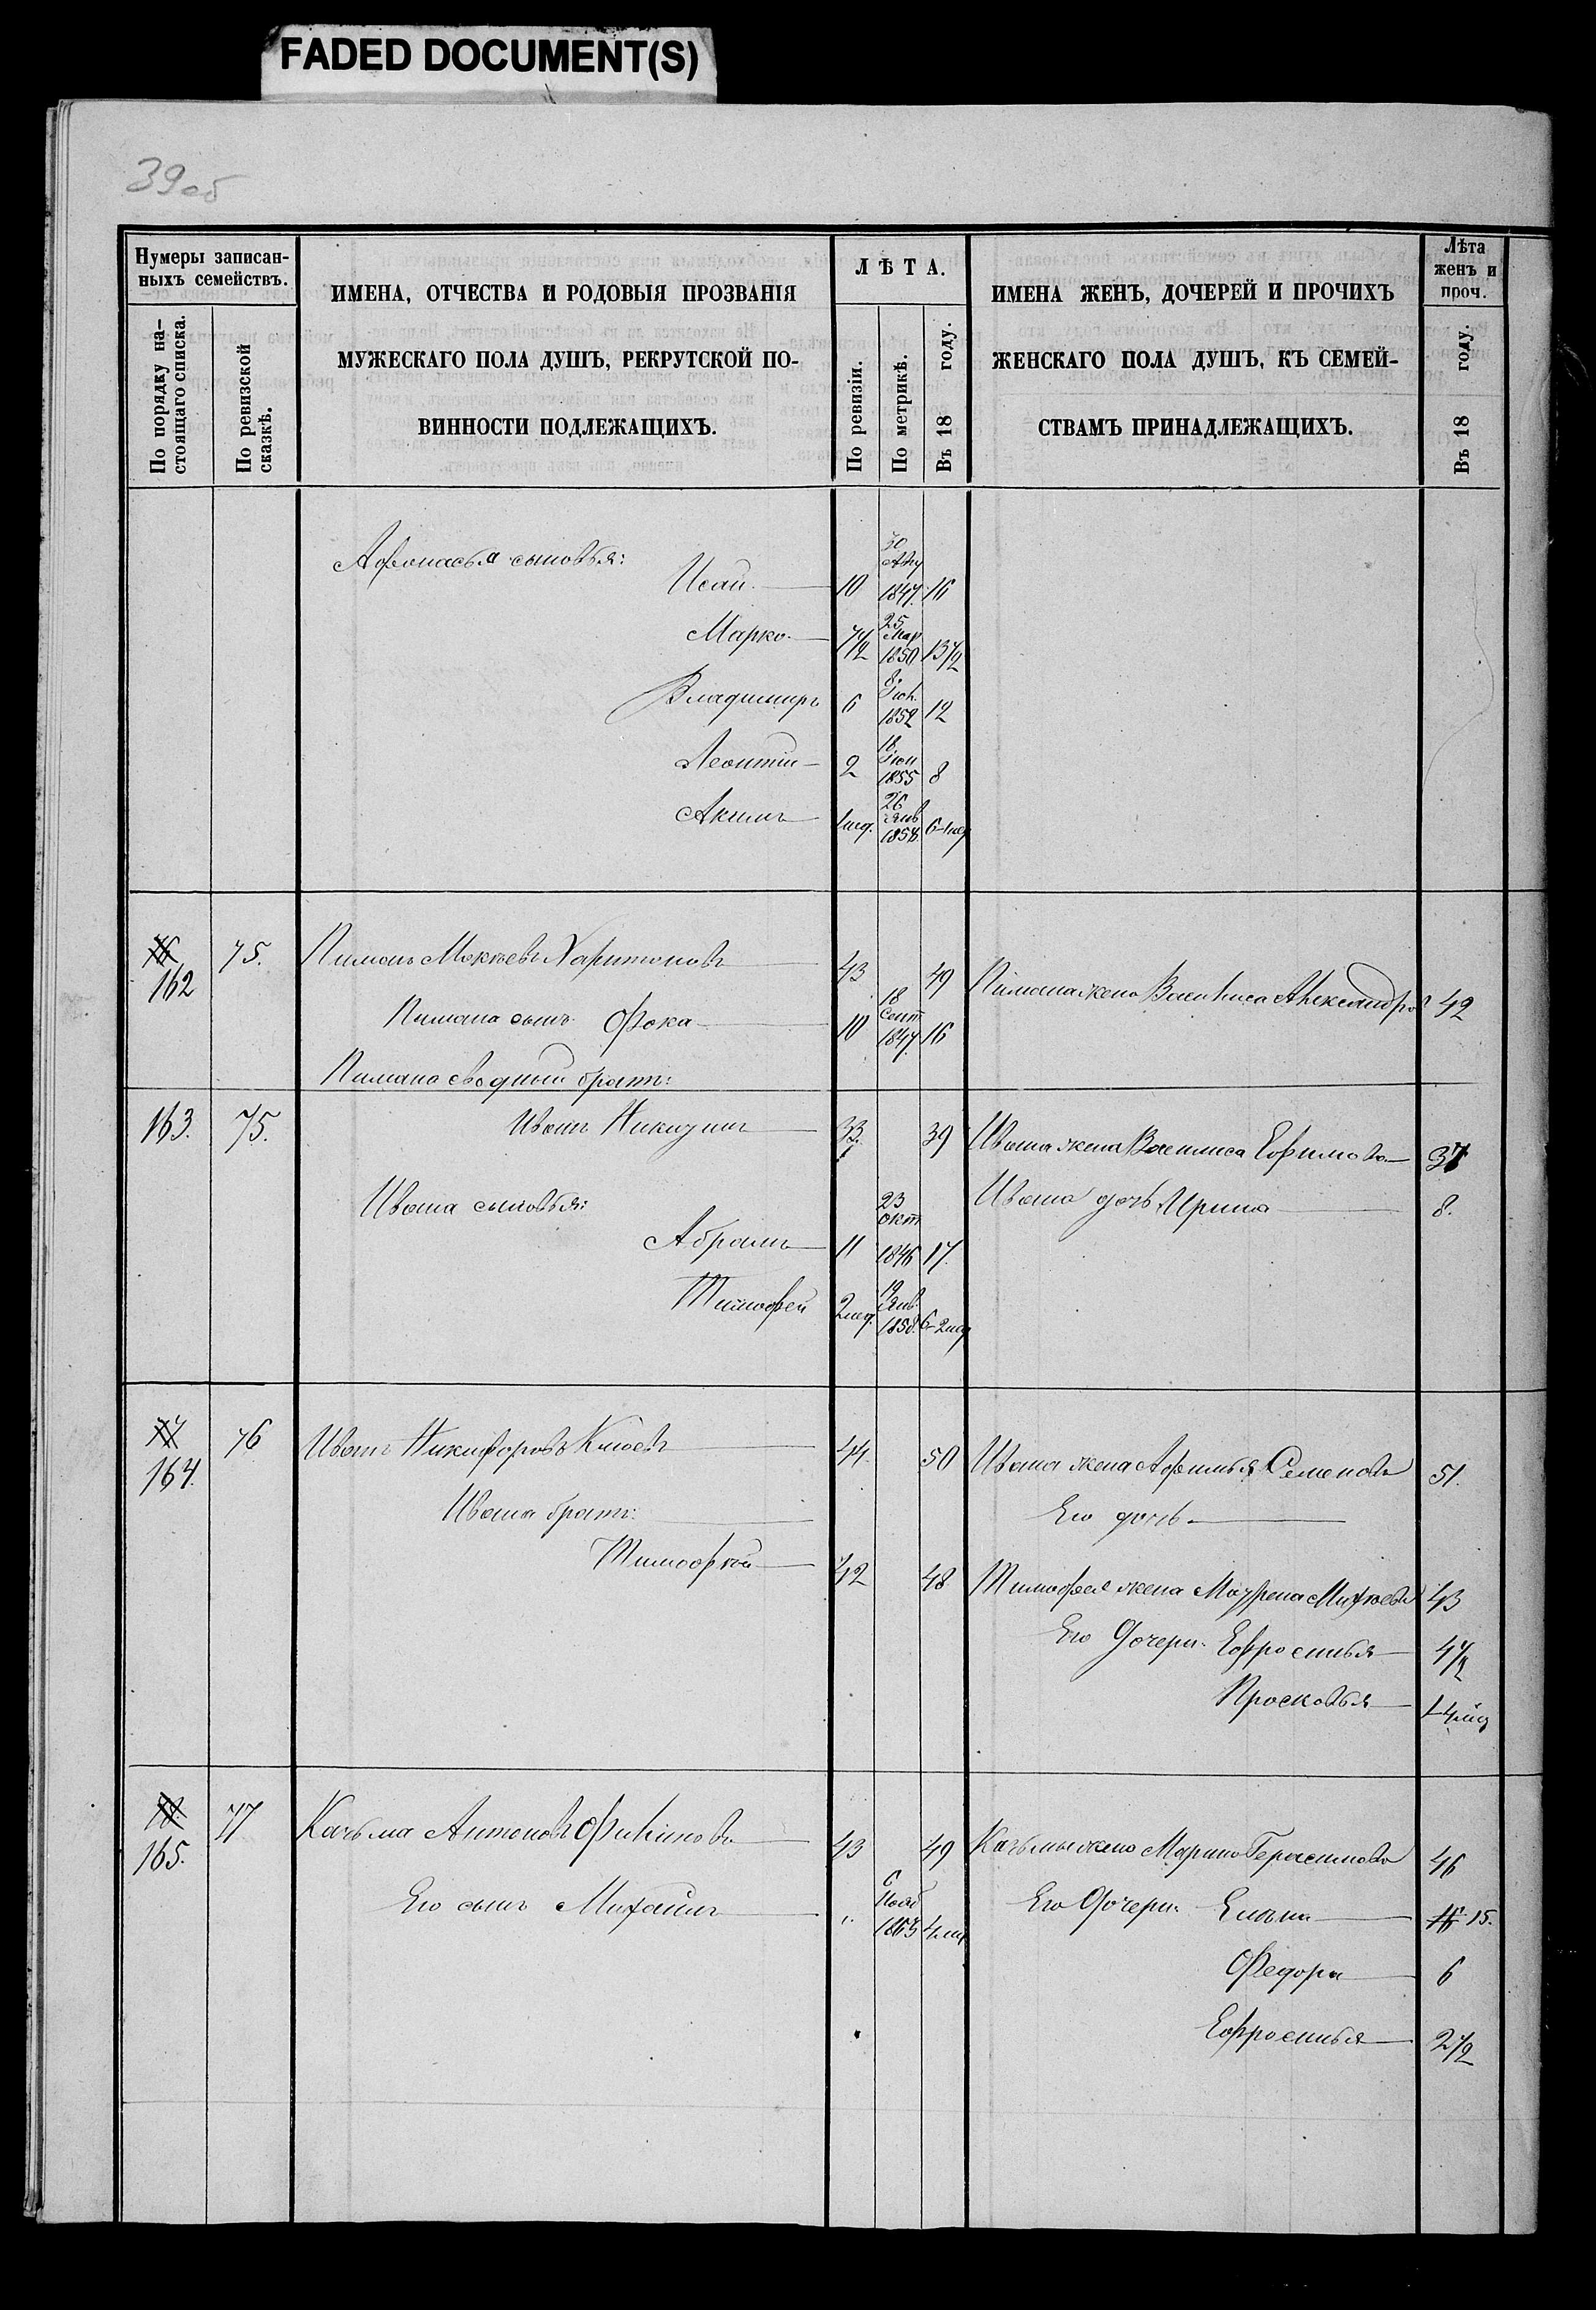 FADED DOCUMENT(S)
39 об
Нумеры записан-
ныхъ семействъ.
По порядку на-
стоящаго списка.
По ревизской
сказкѣ.
ИМЕНА, ОТЧЕСТВА И РОДОВЫЯ ПРОЗВАНІЯ
МУЖЕСКАГО ПОЛА ДУШЪ, РЕКРУТСКОЙ ПО-
ВИННОСТИ ПОДЛЕЖАЩИХЪ.
ЛѢТА.
По ревизіи.
По метрикѣ.
Въ 18 году.
ИМЕНА ЖЕНЪ, ДОЧЕРЕЙ И ПРОЧИХЪ
ЖЕНСКАГО ПОЛА ДУШЪ, КЪ СЕМЕЙ-
СТВАМЪ ПРИНАДЛЕЖАЩИХЪ.
Лѣта
женъ и
проч.
Въ 18 году.
Афонасья сыновья:
Исай 10 30 Авгу 1847 16
Марко 7 1/2 25 Мар 1850 13 1/2
Владимиръ 6 8 1852 12
Леонтій 2 18 Іюн 1855 8
Акимъ 1 нед. 26 Янв 1858 6-1 нед
162 75. Пиманъ Мокѣевъ Харитоновъ 43 49
Пимана жена Василиса Александров 42
Пимана сынъ Фока 10 18 Сент 1847 16
Пимана сводный братъ:
163. 75. Иванъ Никизинъ 33 39
Ивана жена Василиса Ефимова 37
Ивана сыновья:
Ивана дочь Ирина 8.
Абрамъ 11 23 Окт 1846 17.
Тимофей 2 нед. 19 Янв 1858. 6-2 нед
164. 76 Иванъ Никифоровъ 44. 50
Ивана жена Афимья Семенова 51.
Ивана братъ:
Его дочь
Тимофей 42 48
Тимофея жена Маврена 43
Его Дочери Ефросинья 4 1/2
Просковья 1-4 мѣс
165. 77 Казьма Антоновъ Филиповъ 43 49
Казьмы жена Марина Герасимова 46
Его сынъ Михаилъ " 6 Нояб 1863 4 мѣс
Его Дочери: Елена 15.
Федора 6
Ефросинья 2 1/2